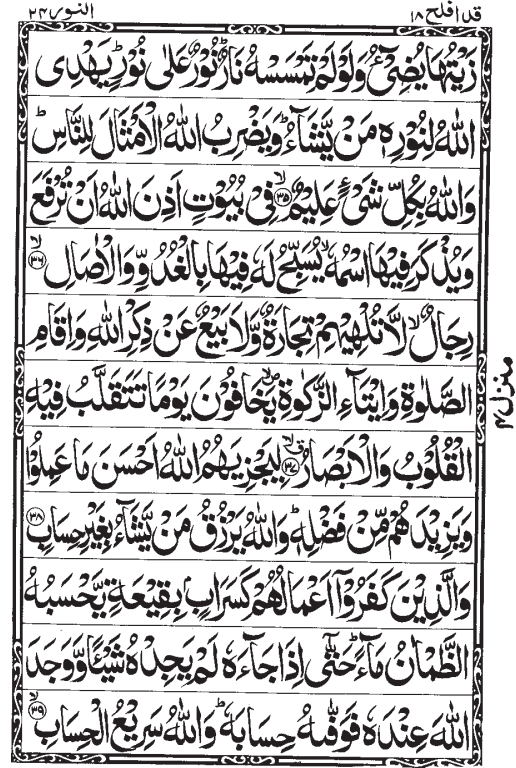 قد افلح ۱۸
النور ۲۴
زَیْتُهَا یُضِیْٓءُ وَ لَوْ لَمْ تَمْسَسْهُ نَارٌؕ نُوْرٌ عَلٰی نُوْرٍؕ یَهْدِی
اللّٰهُ لِنُوْرِهٖ مَنْ یَّشَآءُؕ وَ یَضْرِبُ اللّٰهُ الْاَمْثَالَ لِلنَّاسِؕ
وَ اللّٰهُ بِكُلِّ شَیْءٍ عَلِیْمٌۙ۝۳۵ فِیْ بُیُوْتٍ اَذِنَ اللّٰهُ اَنْ تُرْفَعَ
وَ یُذْكَرَ فِیْهَا اسْمُهٗۙ یُسَبِّحُ لَهٗ فِیْهَا بِالْغُدُوِّ وَ الْاٰصَالِۙ۝۳۶
رِجَالٌۙ لَّا تُلْهِیْهِمْ تِجَارَةٌ وَّ لَا بَیْعٌ عَنْ ذِكْرِ اللّٰهِ وَ اِقَامِ
الصَّلٰوةِ وَ اِیْتَآءِ الزَّكٰوةِ۪ۙ یَخَافُوْنَ یَوْمًا تَتَقَلَّبُ فِیْهِ
الْقُلُوْبُ وَ الْاَبْصَارُۗۙ۝۳۷ لِیَجْزِیَهُمُ اللّٰهُ اَحْسَنَ مَا عَمِلُوْا
وَ یَزِیْدَهُمْ مِّنْ فَضْلِهٖؕ وَ اللّٰهُ یَرْزُقُ مَنْ یَّشَآءُ بِغَیْرِ حِسَابٍ۝۳۸
وَ الَّذِیْنَ كَفَرُوْۤا اَعْمَالُهُمْ كَسَرَابٍۭ بِقِیْعَةٍ یَّحْسَبُهُ
الظَّمْاٰنُ مَآءًؕ حَتّٰۤی اِذَا جَآءَهٗ لَمْ یَجِدْهُ شَیْـًٔا وَّ وَجَدَ
اللّٰهَ عِنْدَهٗ فَوَفّٰىهُ حِسَابَهٗؕ وَ اللّٰهُ سَرِیْعُ الْحِسَابِۙ۝۳۹
منزل ۴